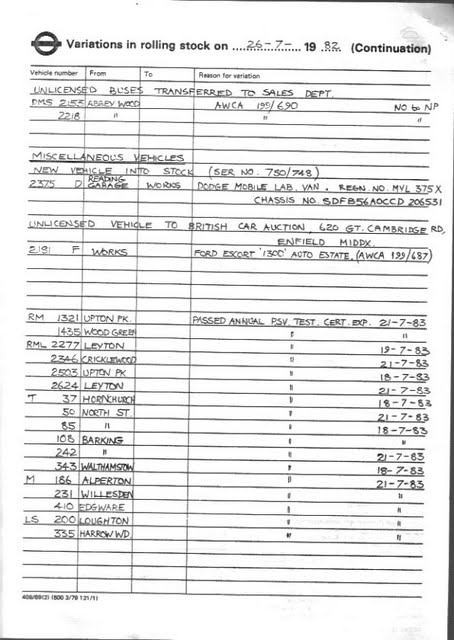 Variations in rolling stock on 26-7- 19 82 (Continuation)
Vehicle number From To Reason for variation
UNLICENSED BUSES TRANSFERRED TO SALES DEPT.
DMS 2155 ABBEY WOOD AWCA 199/690 NO to NP
2218 " " "
MISCELLANEOUS VEHICLES
NEW VEHICLE INTO STOCK (SER NO. 750/748)
2375 D READING GARAGE WORKS DODGE MOBILE LAB. VAN. REGN. NO. MYL 375X
CHASSIS NO. SDFB56AOCCD 206531
UNLICENSED VEHICLE TO BRITISH CAR AUCTION, 620 GT. CAMBRIDGE RD,
ENFIELD MIDDX.
2191 F WORKS FORD ESCORT '1300' AUTO ESTATE. (AWCA 199/687)
RM 1321 UPTON PK. PASSED ANNUAL PSV. TEST. CERT. EXP. 21-7-83
1435 WOOD GREEN " "
RML 2277 LEYTON " 19-7-83
2346 CRICKLEWOOD " 21-7-83
2503 UPTON PK " 18-7-83
2624 LEYTON " 21-7-83
T 37 HORNCHURCH " 18-7-83
50 NORTH ST. " 21-7-83
85 " " 18-7-83
108 BARKING " "
242 " " 21-7-83
343 WALTHAMSTOW " 18-7-83
M 186 ALPERTON " 21-7-83
231 WILLESDEN " "
410 EDGWARE " "
LS 200 LOUGHTON " "
335 HARROW WD. " "
408/89(2) (500 3/79 121/1)